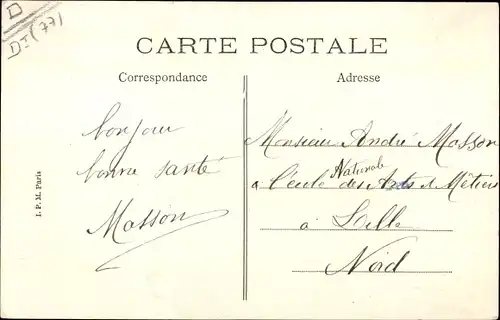 D
DI (77)
CARTE POSTALE
Correspondance
Adresse
bonjour
bonne santé
Masson
Monsieur André Masson
Nationale
à l'école des Arts & Métiers
à Lille
Nord
I. P. M. Paris